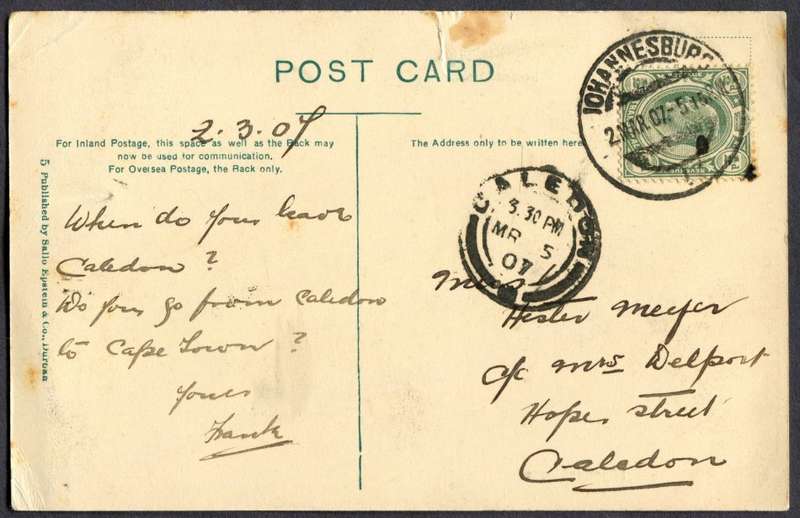 POST CARD
2.3.07
For Inland Postage, this space as well as the Back may
now be used for communication.
For Oversea Postage, the Back only.
The Address only to be written here
JOHANNESBURG
2 MAR 07 - 5.15
CALEDON
3.30 PM
MR 5
07
5 Published by Sallo Epstein & Co., Durban
When do you leave
Caledon ?
Do you go from Caledon
to Cape Town ?
Yours
Frank
Miss
Hester Meyer
c/o Mrs Delport
Hope street
Caledon